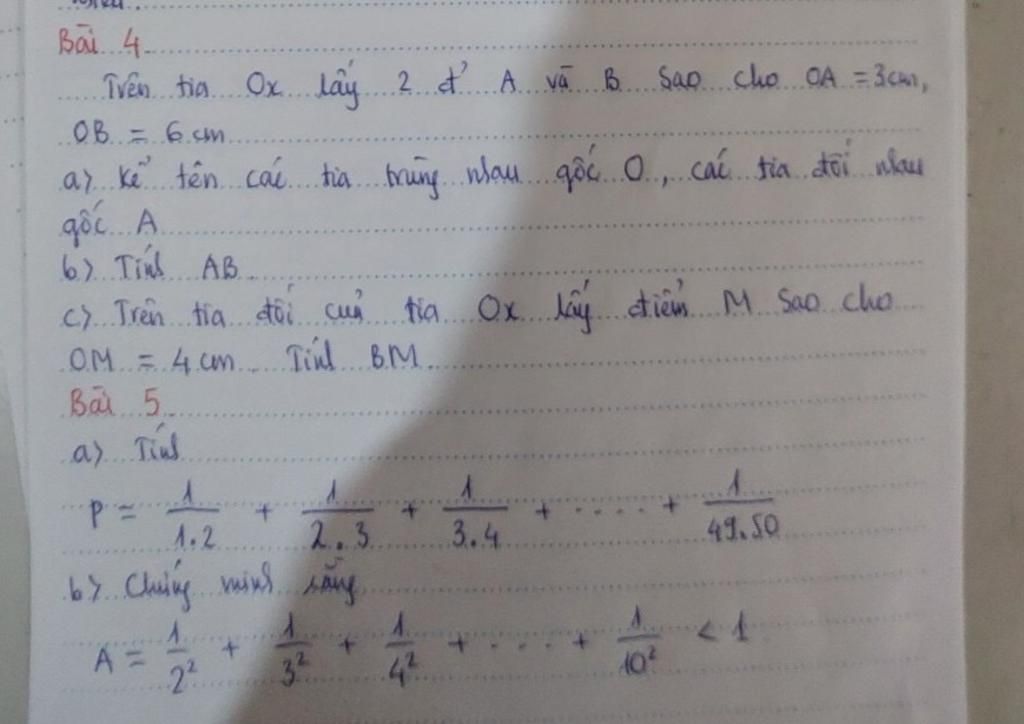 Bài 4
Trên tia Ox lấy 2 đ' A và B sao cho OA = 3cm,
OB = 6 cm
a) Kể tên các tia trùng nhau gốc O, các tia đối nhau
gốc A
b) Tính AB
c) Trên tia đối của tia Ox lấy điểm M sao cho
OM = 4 cm. Tính BM
Bài 5
a) Tính
P = 1/1.2 + 1/2.3 + 1/3.4 + ..... + 1/49.50
b) Chứng minh rằng
A = 1/2² + 1/3² + 1/4² + .... + 1/10² < 1